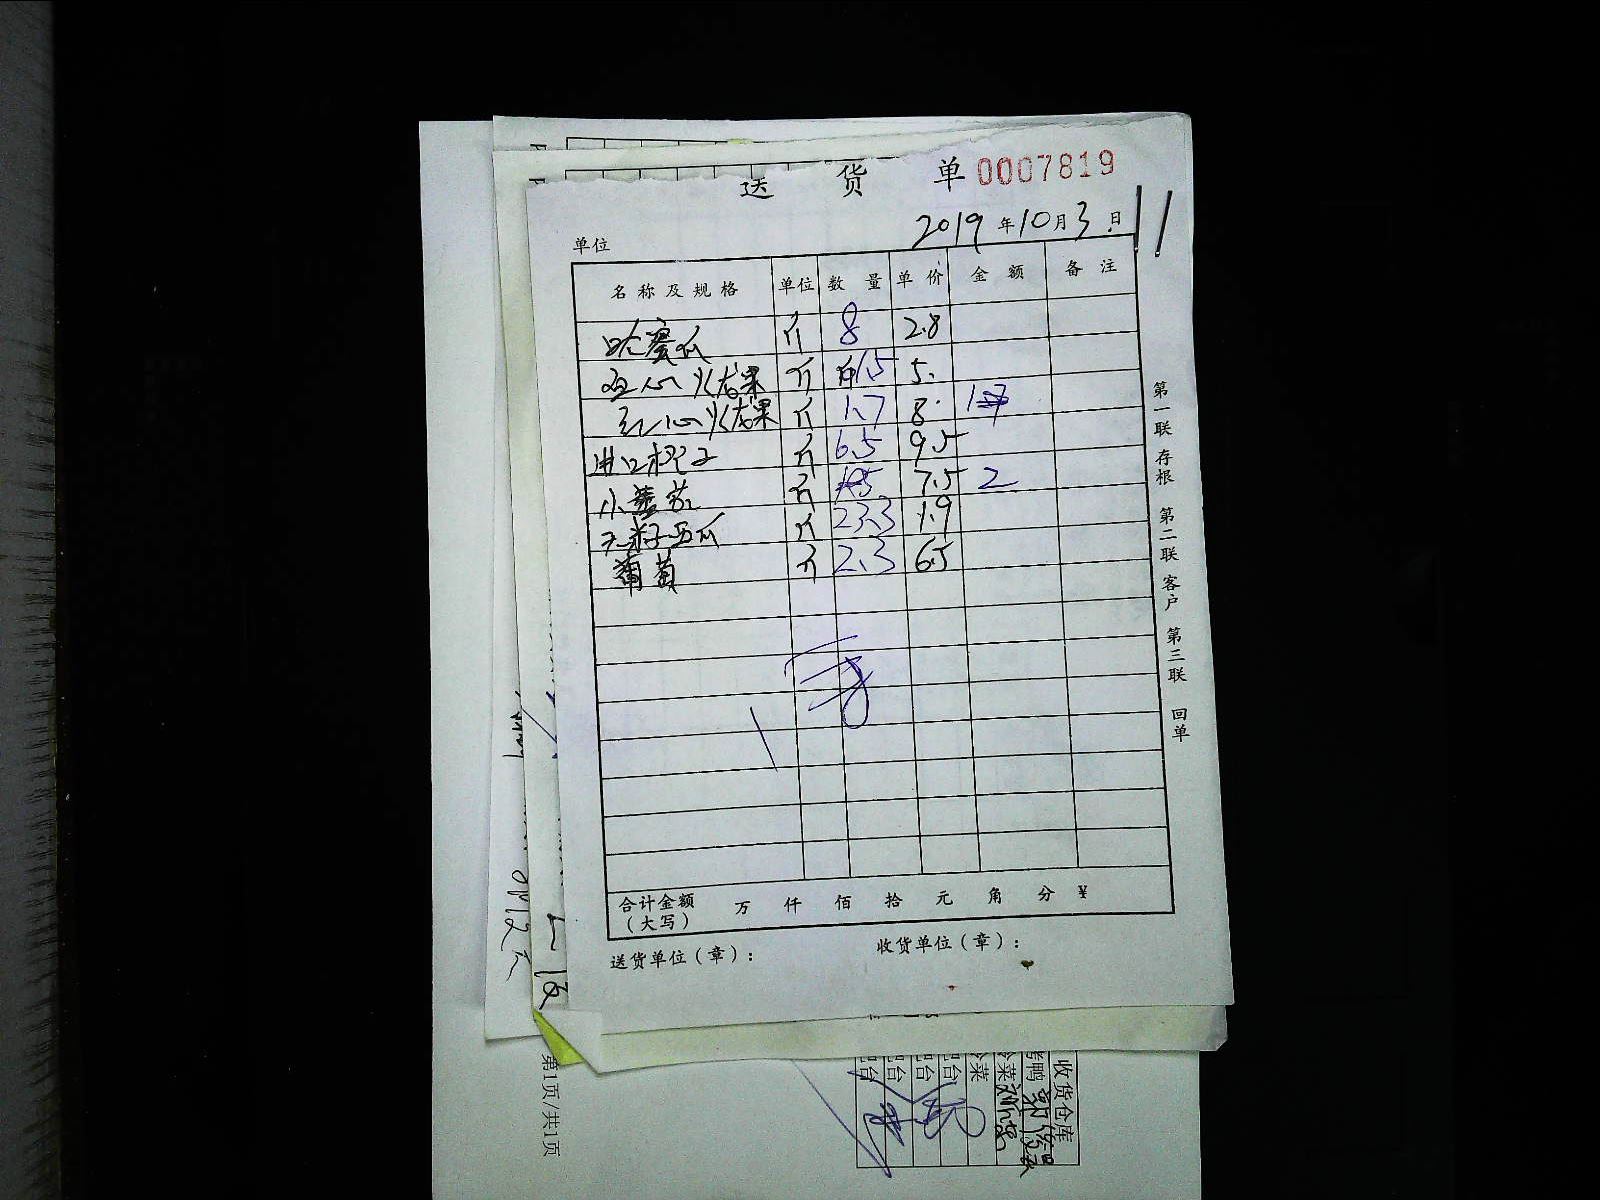 送 货 单 0007819
2019年10月3日
单位
名称及规格 单位 数量 单价 金额 备注
哈蜜瓜 斤 8 2.8
白心火龙果 斤 1.5 5.
红心火龙果 斤 1.7 8.
进口橙子 斤 6.5 9.5
小番茄 斤 7.5 2
无籽西瓜 斤 23.3 1.9
葡萄 斤 2.3 6.5
合计金额(大写) 万 仟 佰 拾 元 角 分 ¥
送货单位(章): 收货单位(章):
第一联 存根 第二联 客户 第三联 回单
第1页/共1页
收货仓库